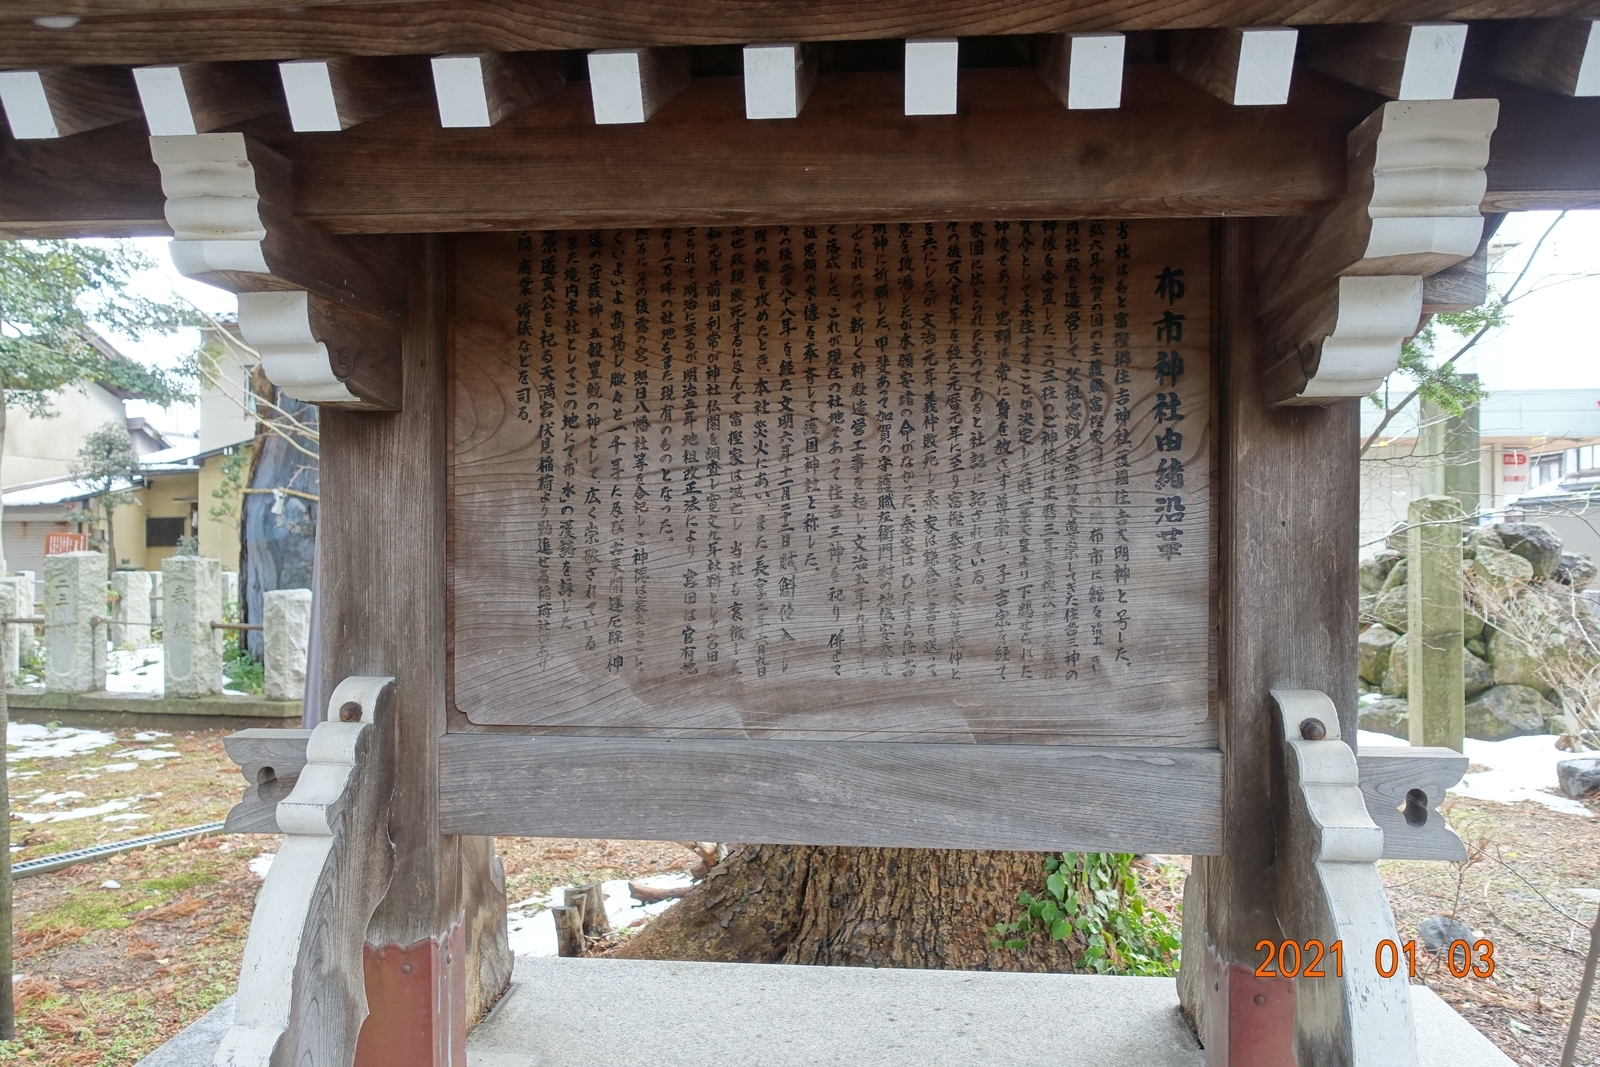 布市神社由緒沿革
当社はもと富樫郷住吉神社護國住吉大明神と号した。
六年加賀の国の主護職富樫家 布市に館を築き
内社殿を造営して父祖忠頼吉宗以来尊崇してきた住吉三神の
神像を安置した、この三柱のご神像は正暦三年
介として永住することが決定した時一条天皇より下賜せられた
神像であって忠頼は常に身を放さず尊崇し、子吉宗を経て
家国に伝えられたものであると社記に記されている。
の後百八十九年を経た元暦元年に至り富樫泰家は木曽義仲と
を共にしたが文治元年義仲敗死し泰家は鎌倉に書を送って
意を披瀝したが本領安堵の命がなかった、泰家はひたすら住吉
明神に祈願した、甲斐あって加賀の守護職左衛門尉の地位安泰を
ぜられたので新しく神殿造営工事を起し文治五年九月
く落成した、これが現在の社地であって住吉三神を祀り併せて
祖忠頼の木像を奉斎して護国神社と称した。
の後二百八十八年を経た文明六年十一月二十二日賊魁侵入し
樫の館を攻めたとき、本社災火にあい、また長享二年六月九日
世政親敗死するに及んで富樫家は滅亡し当社も衰微した
和元年前田利常が神社仏閣を調査し寛文九年社料として宮田
せられて明治に至るが明治五年地租改正法により、宮田は官有地
なり一万坪の社地もまた現有のものとなった。
その後富の宮、照日八幡社等を合祀しご神徳は
くいよいよ高揚し脈々と一千年に及び古来開運厄除の神
の守護神、五穀豊饒の神として、広く崇敬されている
また境内末社としてこの地にて市、水の
原道真公を祀る天満宮、伏見稲荷より勧進せる稲荷社があり
問、商業、婚儀などを司る。
2021 01 03